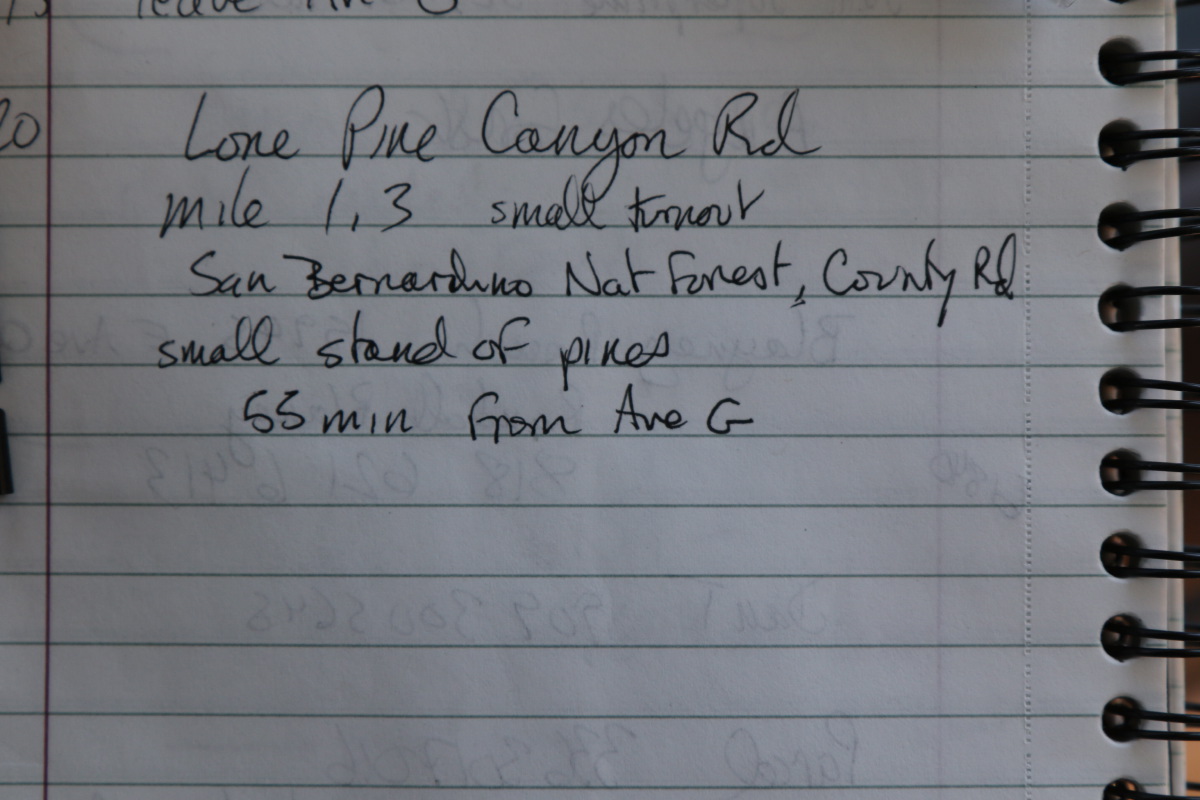 leave
20 Lone Pine Canyon Rd
mile 1.3 small turnout
San Bernardino Nat Forest, County Rd
small stand of pines
55 min from Ave G